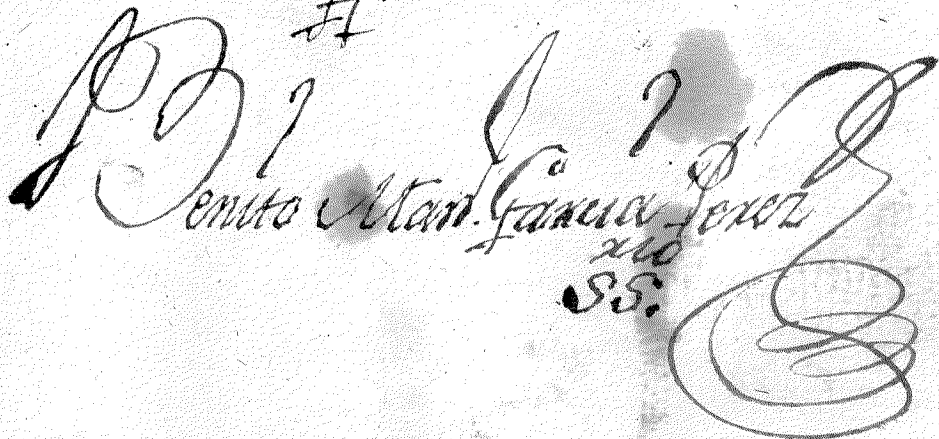 Benito Man. Garcia Perez
rio
SS.